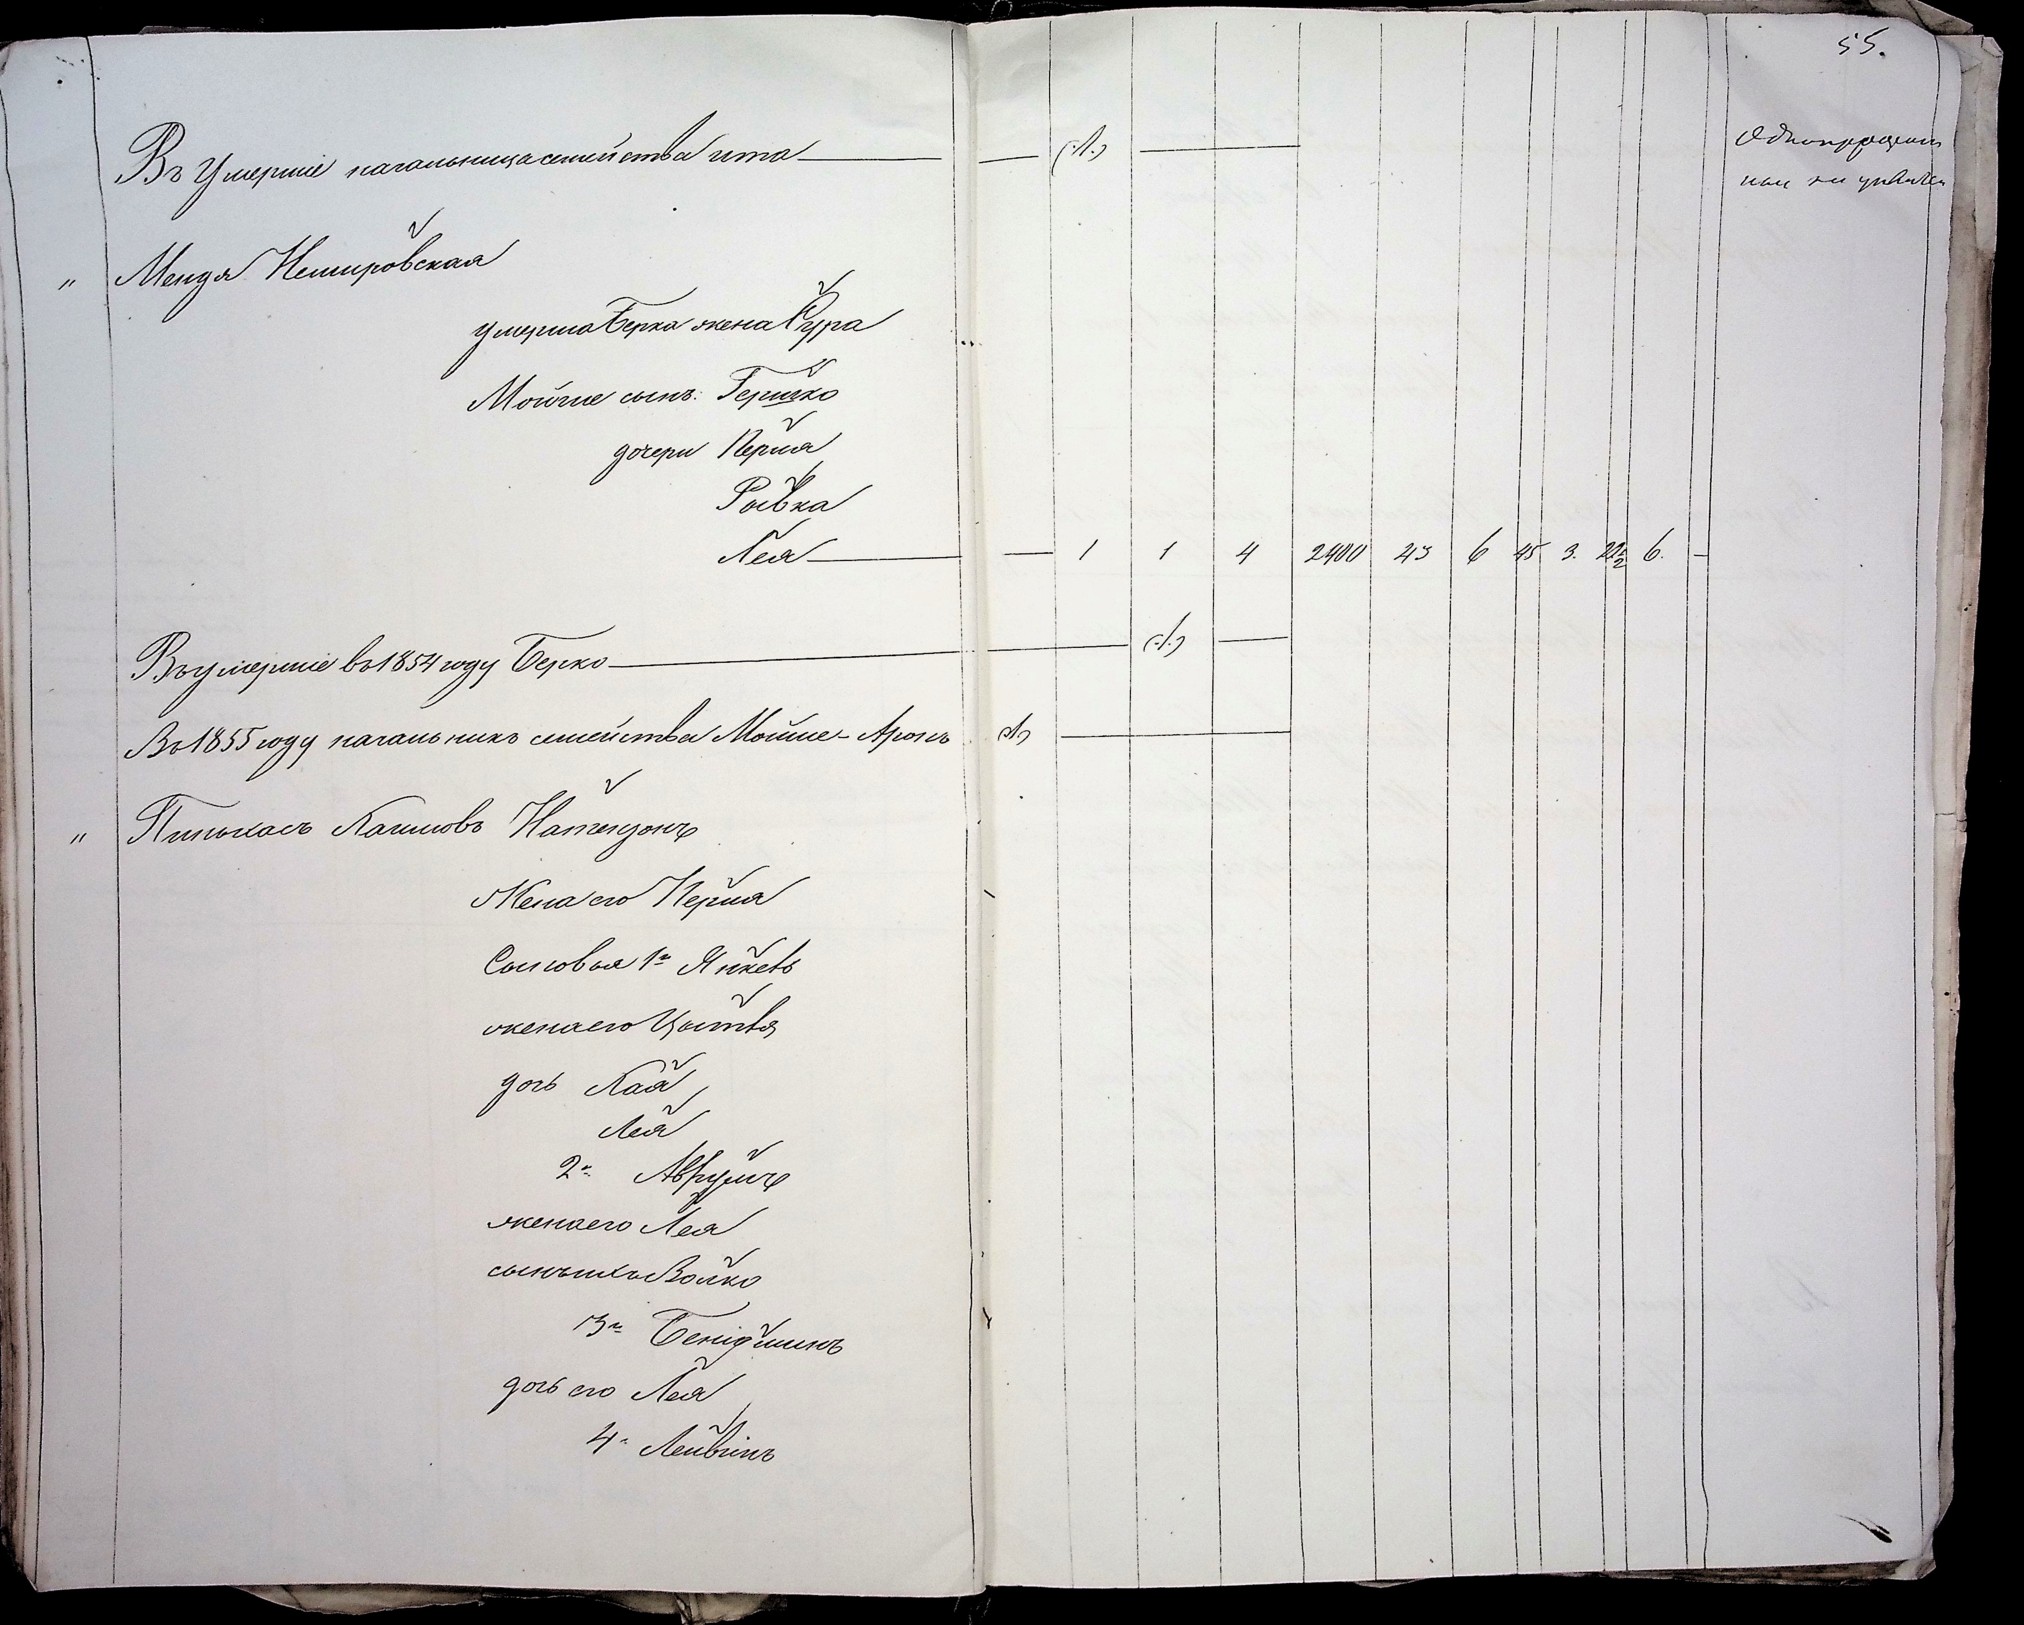 55.
Въ умершіе начальница семейства ита — (1.) —
Однопроцентн
" Менда Немировская
умерша Берка жена Сура
Мойше сынъ: Гершко
дочери Перля
Рывка
Лея — — 1 1 4 2400 43 6 45 3. 22½ 6. —
Въ умершіе въ 1854 году Берко — (1.) —
Въ 1855 году начальникъ семейства Мойше-Аронъ (1.) —
" Пинькасъ Хаимовъ
Жена его Перля
Сыновья 1й Янкевъ
жена его Цытвя
дочь Хая
Лея
2й Аврумъ
жена его Лея
сынъ ихъ Волко
3й Беніяминъ
дочь его Лея
4й